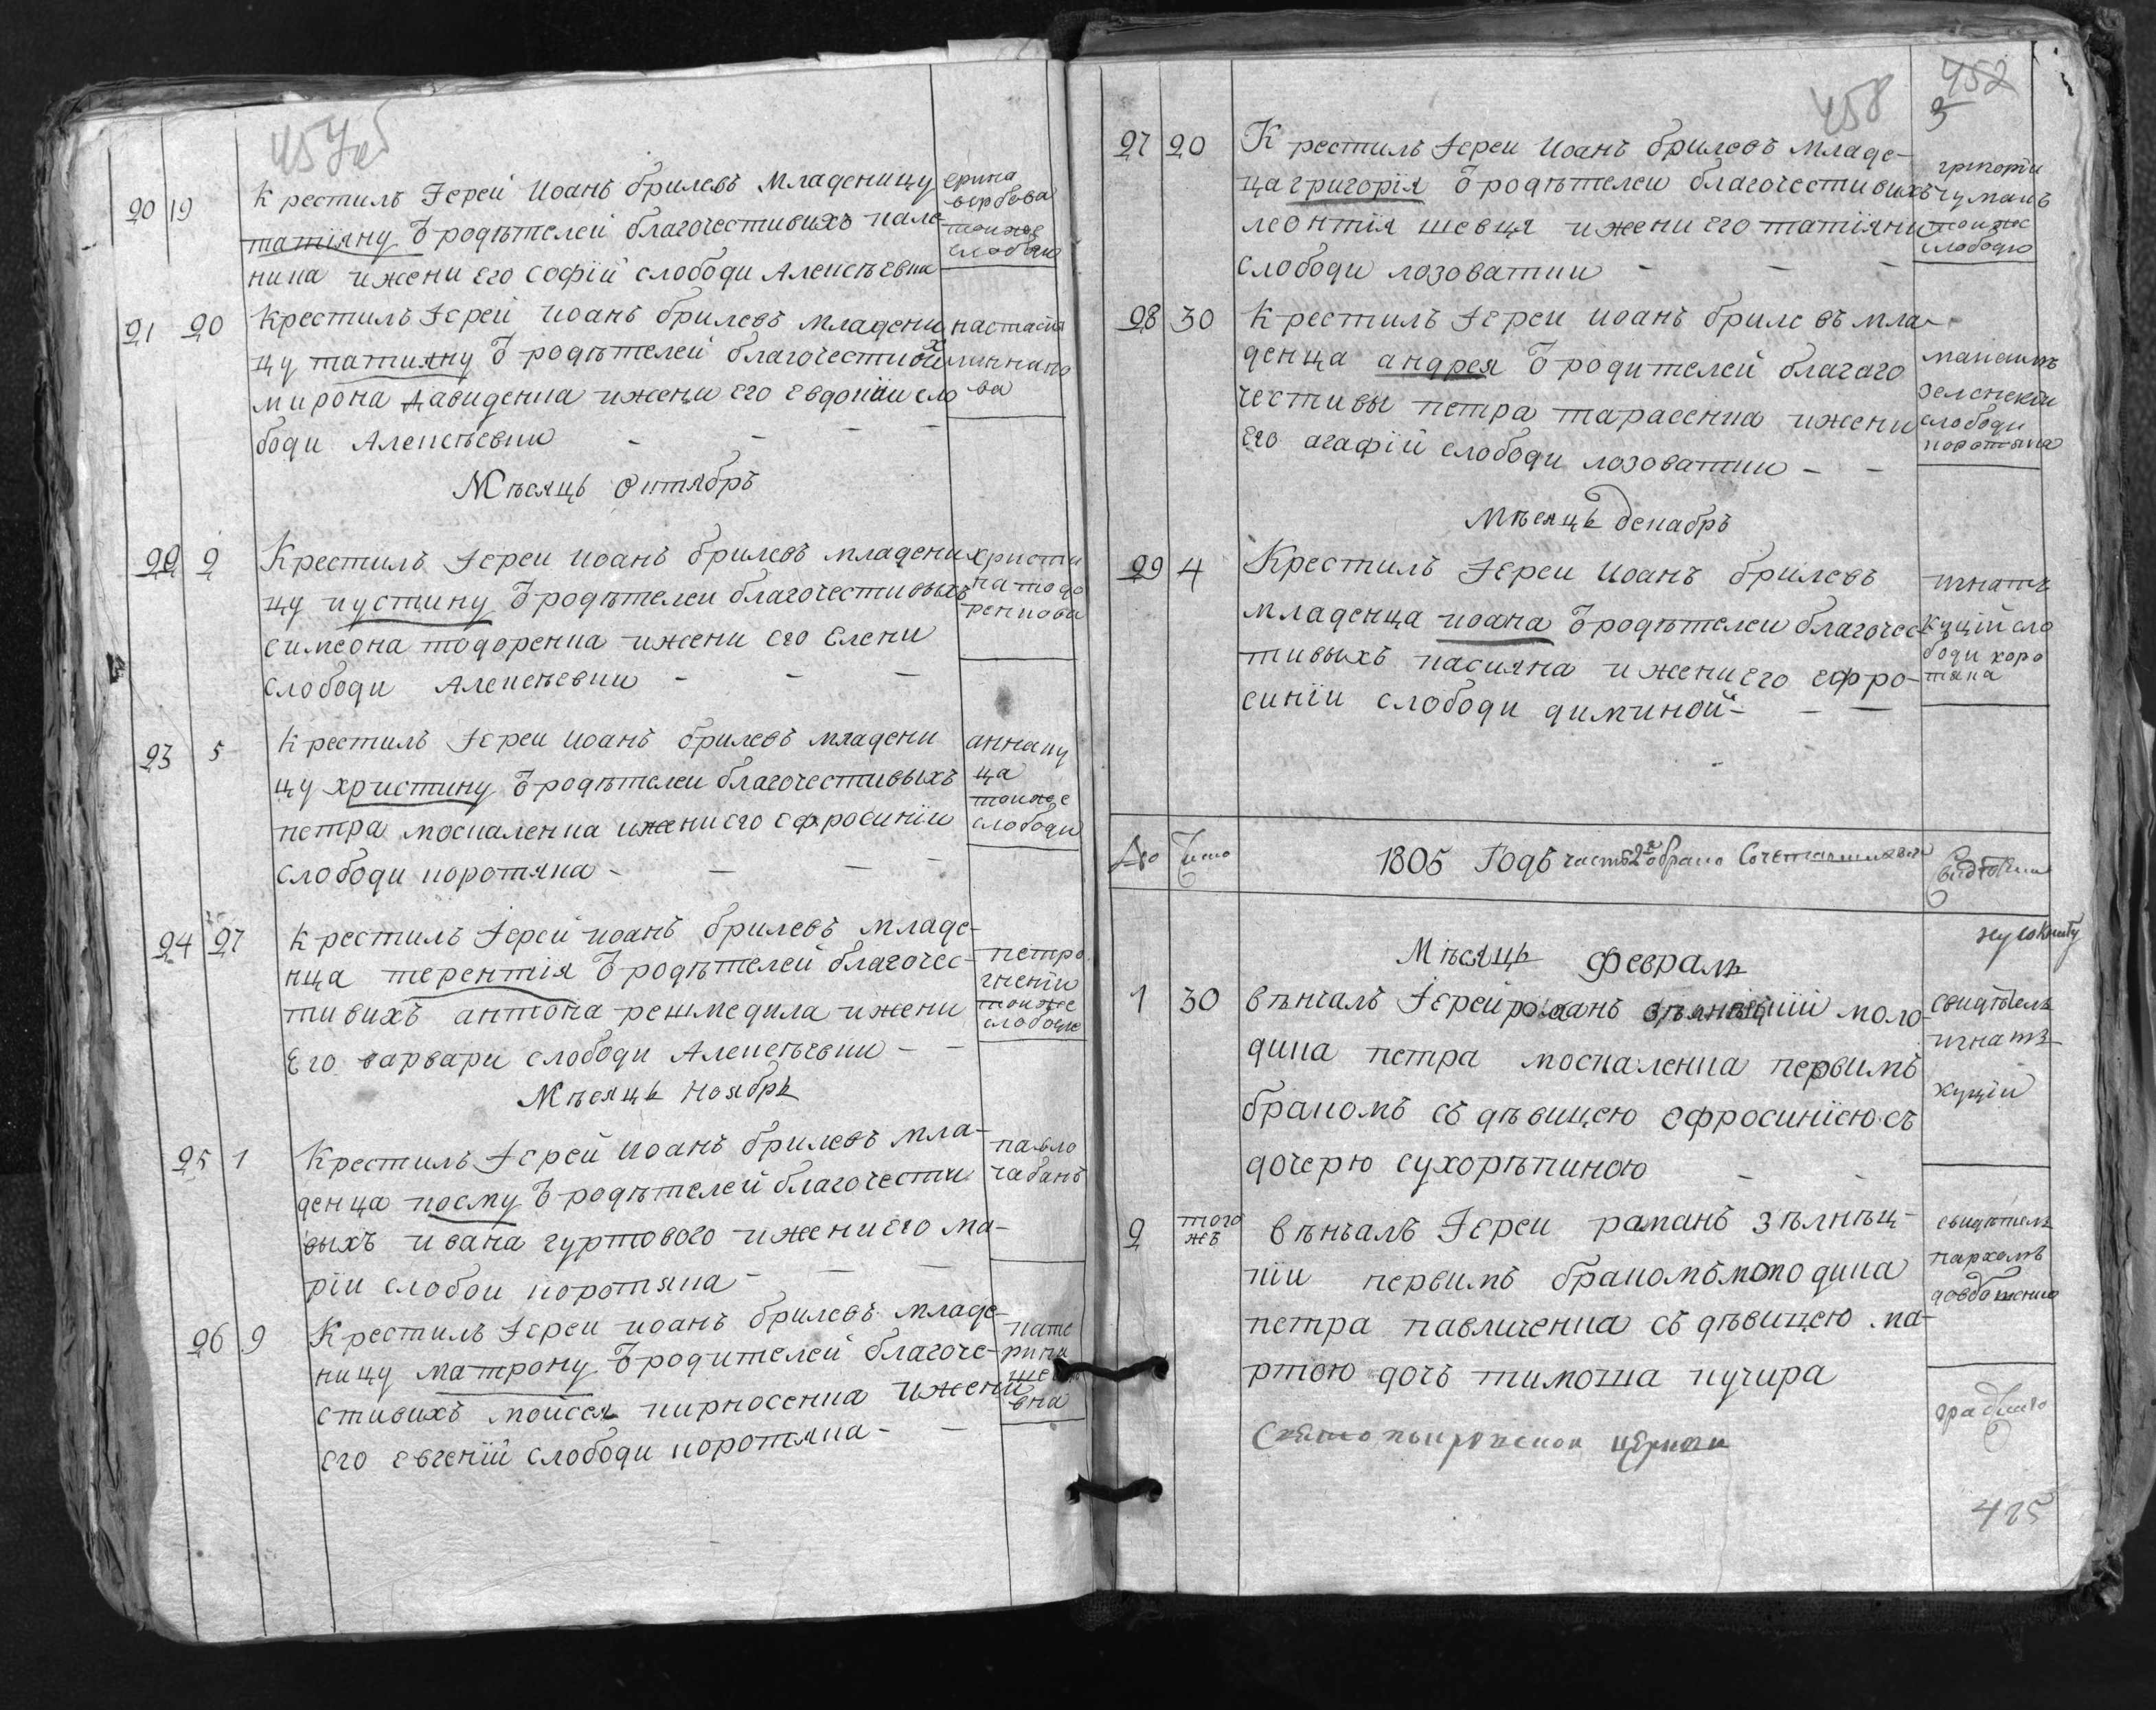 457об
20 19 Крестилъ Іерей Иоанъ брилевъ Младеницу
татіяну Ѿ родѣтелей благочестивихъ кале-
ника и жени его софій слободи Алексѣевки
ерина
вербова
тоижъ
слободи
21 20 Крестилъ Іерей Иоанъ брилевъ младени
цу татияну Ѿ родѣтелей благочестивихъ
мирона давиденка и жени его Евдокіи сло
боди Алексѣевки
настасия
Мѣсяць Октябръ
22 2 Крестилъ Іереи Иоанъ брилевъ младени
цу иустину Ѿ родѣтелеи благочестивыхъ
симеона тодоренка и жени его Елени
слободи Алексѣевки
христи
на тодо
ренкова
23 5 Крестилъ Іереи Иоанъ брилевъ младени
цу христину Ѿ родѣтелеи благочестивыхъ
петра москаленка и жени его ефросиніи
слободи коротяка
анна ку
ца
тоиже
слободи
24 27 Крестилъ Іерей иоанъ брилевъ младе-
нца терентія Ѿ родѣтелей благочес-
тивихъ антона решмедила и жени
Его варвари слободи Алексѣевки
петро
гнеткы
тоиже
слободи
Мѣсяць Ноябрь
25 1 Крестилъ Іерей Иоанъ брилевъ мла-
денца косму Ѿ родѣтелей благочести
выхъ ивана гуртового и жени его ма-
ріи слобои коротяка
павло
чабанъ
26 9 Крестилъ Іереи иоанъ брилевъ младе-
ницу матрону Ѿ родителей благоче-
стивихъ мойсея кирносенка и жени
его евгеній слободи коротяка
кате
рина
458
452
27 20 Крестилъ Іереи Иоанъ брилевъ Младе-
ца григорія Ѿ родѣтелеи благочестивихъ
леонтія шевця и жени его татіяни
слободи лозоватки
чуманъ
тоиже
слободи
28 30 Крестилъ Іереи иоанъ брилевъ мла-
денца андрея Ѿ родителей благаго
честивы петра тарасенка и жени
его агафій слободи лозоватки
максимъ
зеленскіи
слободи
коротяка
Мѣсяць декабръ
29 4 Крестилъ Іереи Иоанъ брилевъ
младенца иоана Ѿ родѣтелеи благочес-
тивыхъ касияна и жени его ефро-
синіи слободи диминой
игнатъ
куцій сло
боди коро
тяка
№ Число 1805 Годъ часть 2я о брако Сочетавшихся
Мѣсяць Февраль
1 30 вѣнчалъ Іерей романъ моло
дика петра москаленка первимъ
бракомъ съ дѣвицею ефросиніею съ
дочерю сухорѣпиною
свидѣтель
игнатъ
куцій
2 того
жъ вѣнчалъ Іереи романъ зѣлнѣц-
кіи первимъ бракомъ молодика
петра павличенка съ дѣвицею ма-
ртою дочъ тимоша кучира
свидѣтель
пархомъ
церкви
425